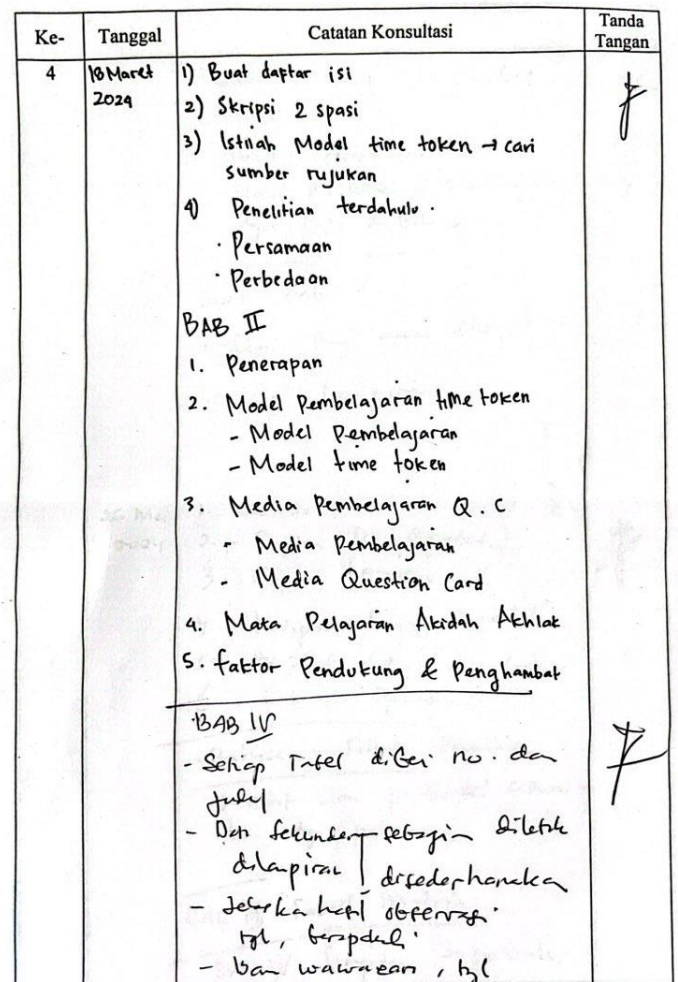 Ke- Tanggal Catatan Konsultasi Tanda Tangan
4 18 Maret 2024
1) Buat daftar isi
2) Skripsi 2 spasi
3) Istilah Model time token → cari
sumber rujukan
4) Penelitian terdahulu.
· Persamaan
· Perbedaan
BAB II
1. Penerapan
2. Model Pembelajaran time token
- Model Pembelajaran
- Model time token
3. Media Pembelajaran Q.C
- Media Pembelajaran
- Media Question Card
4. Mata Pelajaran Akidah Akhlak
5. faktor Pendukung & Penghambat
BAB IV
- Setiap Tabel diberi no. dan
judul
- Data sekunder sebagian diletak
dilampiran disederhanakan
- hasil observasi
tgl,
- wawancara, tgl